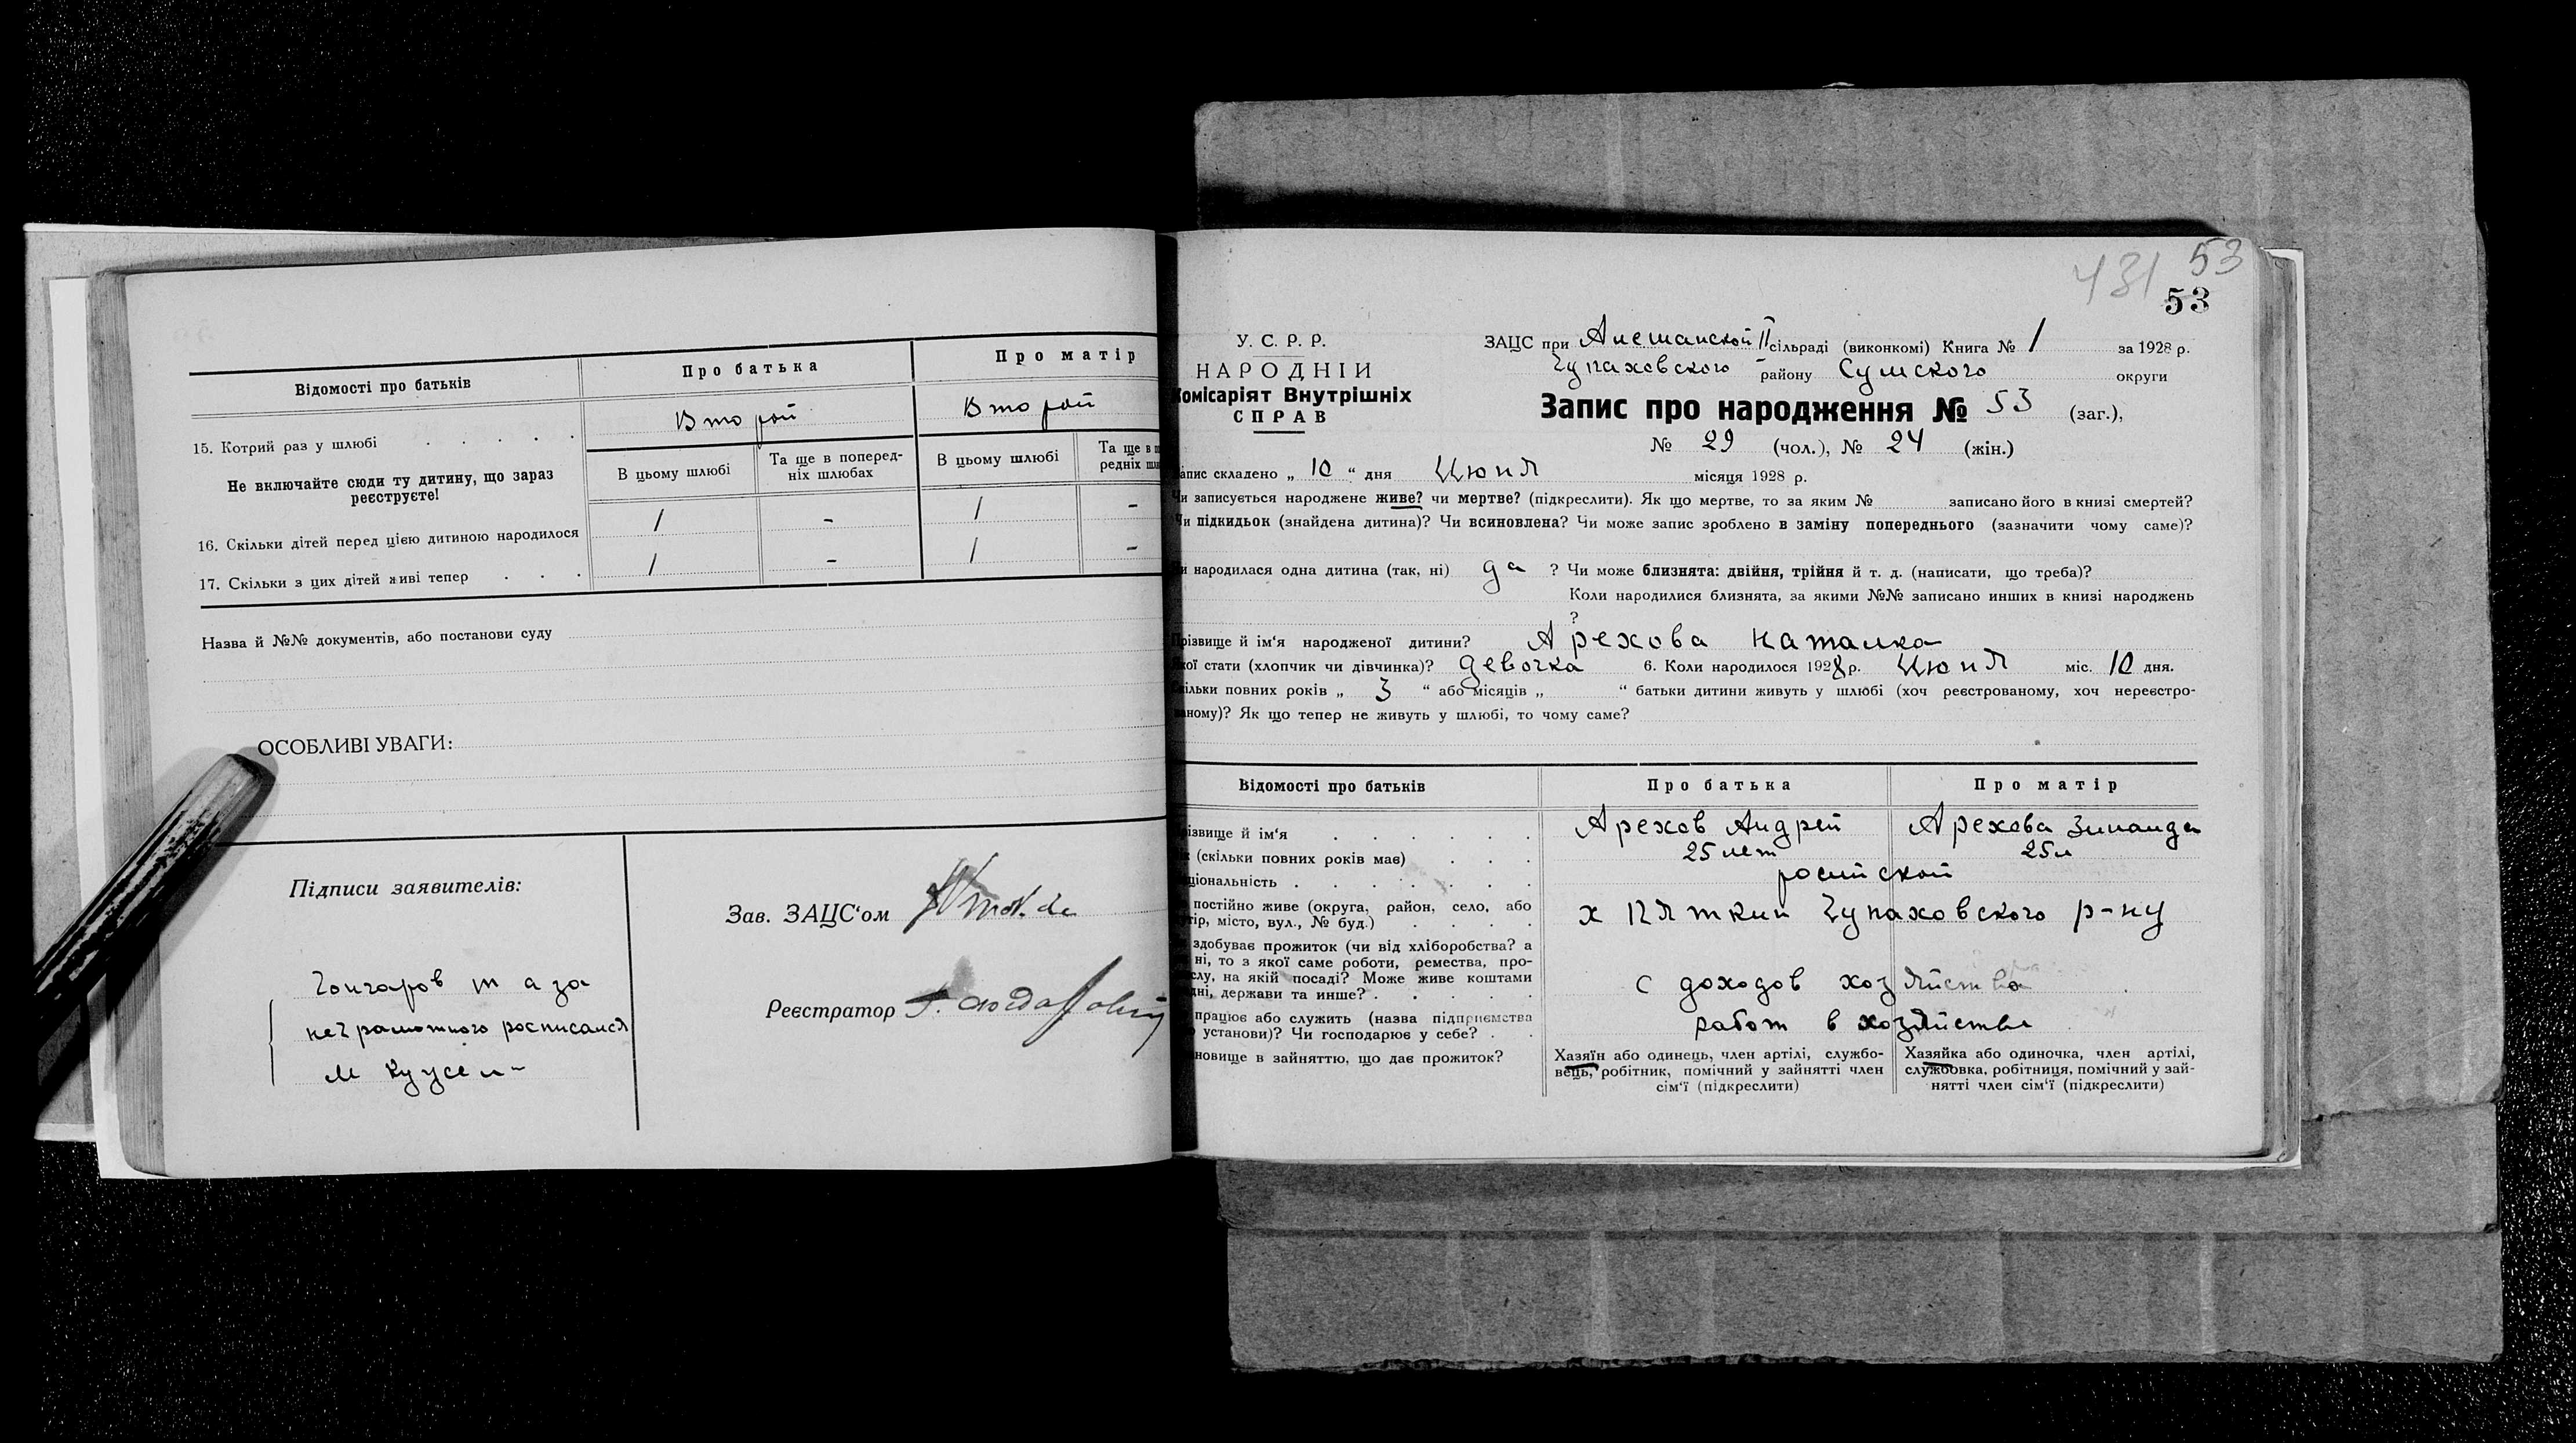 Відомості про батьків
Про батька
Про матір
15. Котрий раз у шлюбі
Второй
Второй
Не включайте сюди ту дитину, що зараз
реєструєте!
В цьому шлюбі
Та ще в поперед-
ніх шлюбах
В цьому шлюбі
Та ще в
редніх
16. Скільки дітей перед цією дитиною народилося
1 - 1 -
17. Скільки з цих дітей живі тепер
1 - 1 -
Назва й №№ документів, або постанови суду
ОСОБЛИВІ УВАГИ:
Підписи заявителів:
Гончаров т а за
неграмотного росписался
М
Зав. ЗАЦС‘ом
Реєстратор
431 53
53
У. С. Р. Р.
НАРОДНІЙ
Комісаріят Внутрішніх
СПРАВ
ЗАЦС при Алешанской II сільраді (виконкомі) Книга № 1 за 1928 р.
Чупаховского району Сумского округи
Запис про народження № 53 (заг.),
№ 29 (чол.), № 24 (жін.)
Запис складено „ 10 “ дня Июня місяця 1928 р.
Чи записується народжене живе? чи мертве? (підкреслити). Як що мертве, то за яким № записано його в книзі смертей?
Чи підкидьок (знайдена дитина)? Чи всиновлена? Чи може запис зроблено в заміну попереднього (зазначити чому саме)?
Чи народилася одна дитина (так, ні) да ? Чи може близнята: двійня, трійня й т. д. (написати, що треба)?
Коли народилися близнята, за якими №№ записано инших в книзі народжень
?
Прізвище й ім‘я народженої дитини? Арехова Наталка
Якої стати (хлопчик чи дівчинка)? девочка 6. Коли народилося 1928 р. Июня міс. 10 дня.
Скільки повних років „ 3 “ або місяців „ “ батьки дитини живуть у шлюбі (хоч реєстрованому, хоч нереєстро-
ваному)? Як що тепер не живуть у шлюбі, то чому саме?
Відомості про батьків
Про батька
Про матір
Прізвище й ім‘я
Арехов Андрей
Арехова Зинаида
(скільки повних років має)
25 лет
25 л
національність
росийской
постійно живе (округа, район, село, або
хутір, місто, вул., № буд.)
х Пяткин Чупаховского р-ну
здобуває прожиток (чи від хліборобства? а
ні, то з якої саме роботи, ремества, про-
слу, на якій посаді? Може живе коштами
дні, держави та инше?
с доходов хозяйства
працює або служить (назва підприємства
установи)? Чи господарює у себе?
работ в хозяйстве
становище в зайняттю, що дає прожиток?
Хазяїн або одинець, член артілі, службо-
вець, робітник, помічний у занятті член
сім‘ї (підкреслити)
Хазяйка або одиночка, член артілі,
службовка, робітниця, помічний у зай-
нятті член сім‘ї (підкреслити)